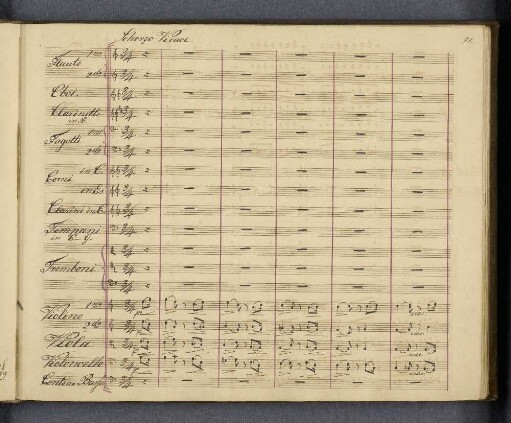 Scherzo Vivace
Flauto 1mo
2do
Oboi
Clarinetti
in B.
Fagotti 1mo
2do
Corni in C.
in Es
Clarini in C.
Timpani
in C-G.
Tromboni
Violino 1mo
2do
Viola
Violoncello
Contra-Basso